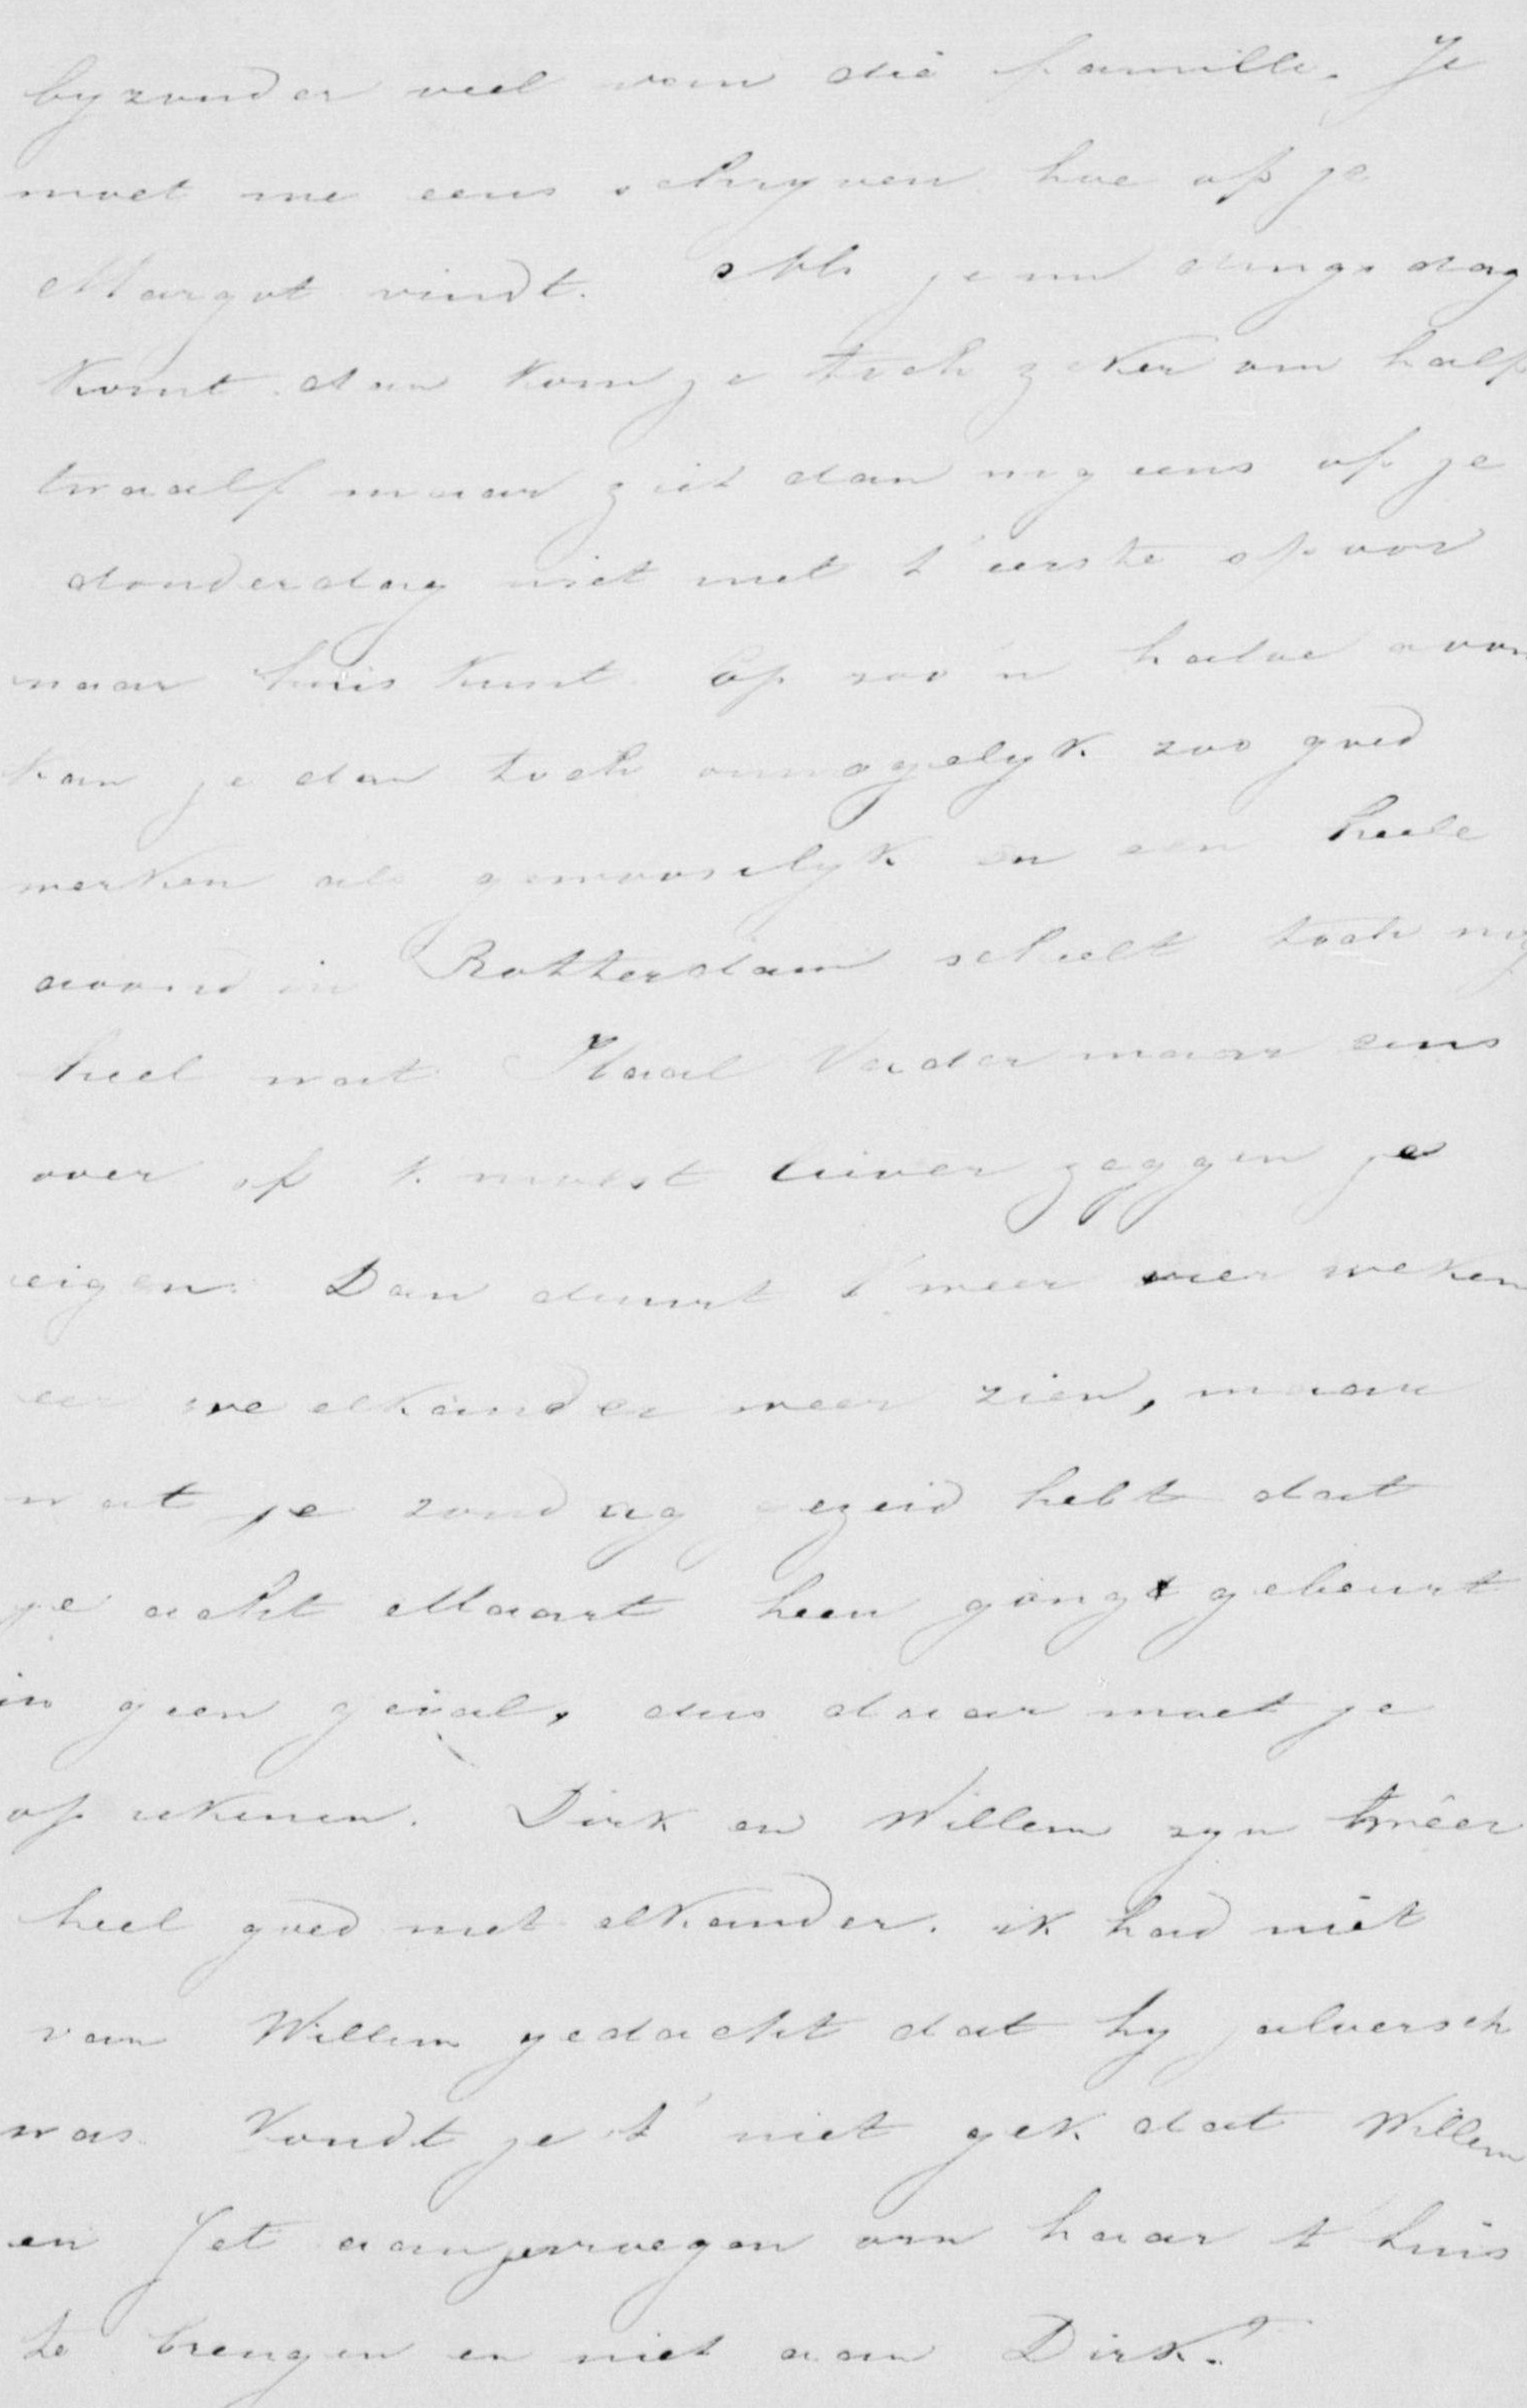 byzonder veel van die familie. Je
moet me eens schryven hoe of je
Margot vindt. Als je nu dingsdag
komt dan kom je toch zeker om half
twaalf maar ziet dan nog eens of je
donderdag niet met t' eerste op voor
naar huis kunt. Op zoo'n halve avon
kan je dan toch onmogelyk zoo goed
werken als gewoonlyk en een heele
avond in Rotterdam scheelt toch nog
heel wat. Haal Vader maar eens
over of k moest liever zeggen je
eigen. Dan duurt t' weer vier weken
eer we elkander weer zien, maar
wat je zondag gezeid hebt dat
je acht Maart heen gongt gebeurt
in geen geval, dus daar moet je
op rekenen. Dirk en Willem zyn t' wéer
heel goed met elkander. ik had niet
van Willem gedacht dat hy jaloersch
was. Vondt je t' niet gek dat Willem
en Jet aan vroegen om haar t' huis
te brengen en niet aan Dirk?